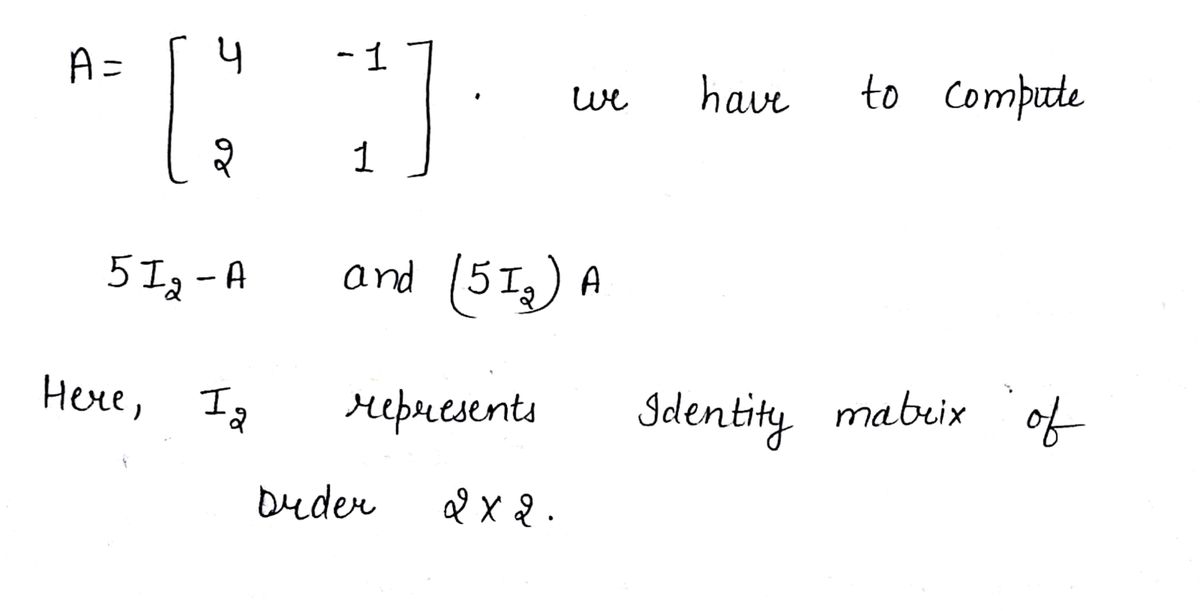 A = [ 4 -1
2 1 ] . we have to compute
5I₂ - A and (5I₂) A
Here, I₂ represents Identity matrix of
order 2 x 2.